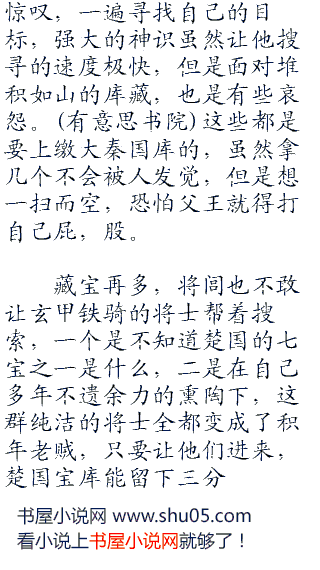 惊叹，一遍寻找自己的目
标，强大的神识虽然让他搜
寻的速度极快，但是面对堆
积如山的库藏，也是有些哀
怨。(有意思书院)这些都是
要上缴大秦国库的，虽然拿
几个不会被人发觉，但是想
一扫而空，恐怕父王就得打
自己屁，股。
藏宝再多，将闾也不敢
让玄甲铁骑的将士帮着搜
索，一个是不知道楚国的七
宝之一是什么，二是在自己
多年不遗余力的熏陶下，这
群纯洁的将士全都变成了积
年老贼，只要让他们进来，
楚国宝库能留下三分
书屋小说网 www.shu05.com
看小说上书屋小说网就够了！